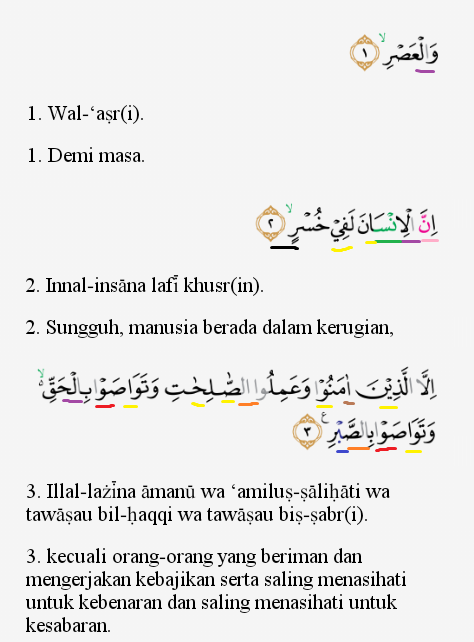 وَالْعَصْرِۙ ١
1. Wal-‘aṣr(i).
1. Demi masa.
اِنَّ الْاِنْسَانَ لَفِيْ خُسْرٍۙ ٢
2. Innal-insāna lafī khusr(in).
2. Sungguh, manusia berada dalam kerugian,
اِلَّا الَّذِيْنَ اٰمَنُوْا وَعَمِلُوا الصّٰلِحٰتِ وَتَوَاصَوْا بِالْحَقِّۙ
وَتَوَاصَوْا بِالصَّبْرِ ࣖ ٣
3. Illal-lażīna āmanū wa ‘amiluṣ-ṣāliḥāti wa
tawāṣau bil-ḥaqqi wa tawāṣau biṣ-ṣabr(i).
3. kecuali orang-orang yang beriman dan
mengerjakan kebajikan serta saling menasihati
untuk kebenaran dan saling menasihati untuk
kesabaran.